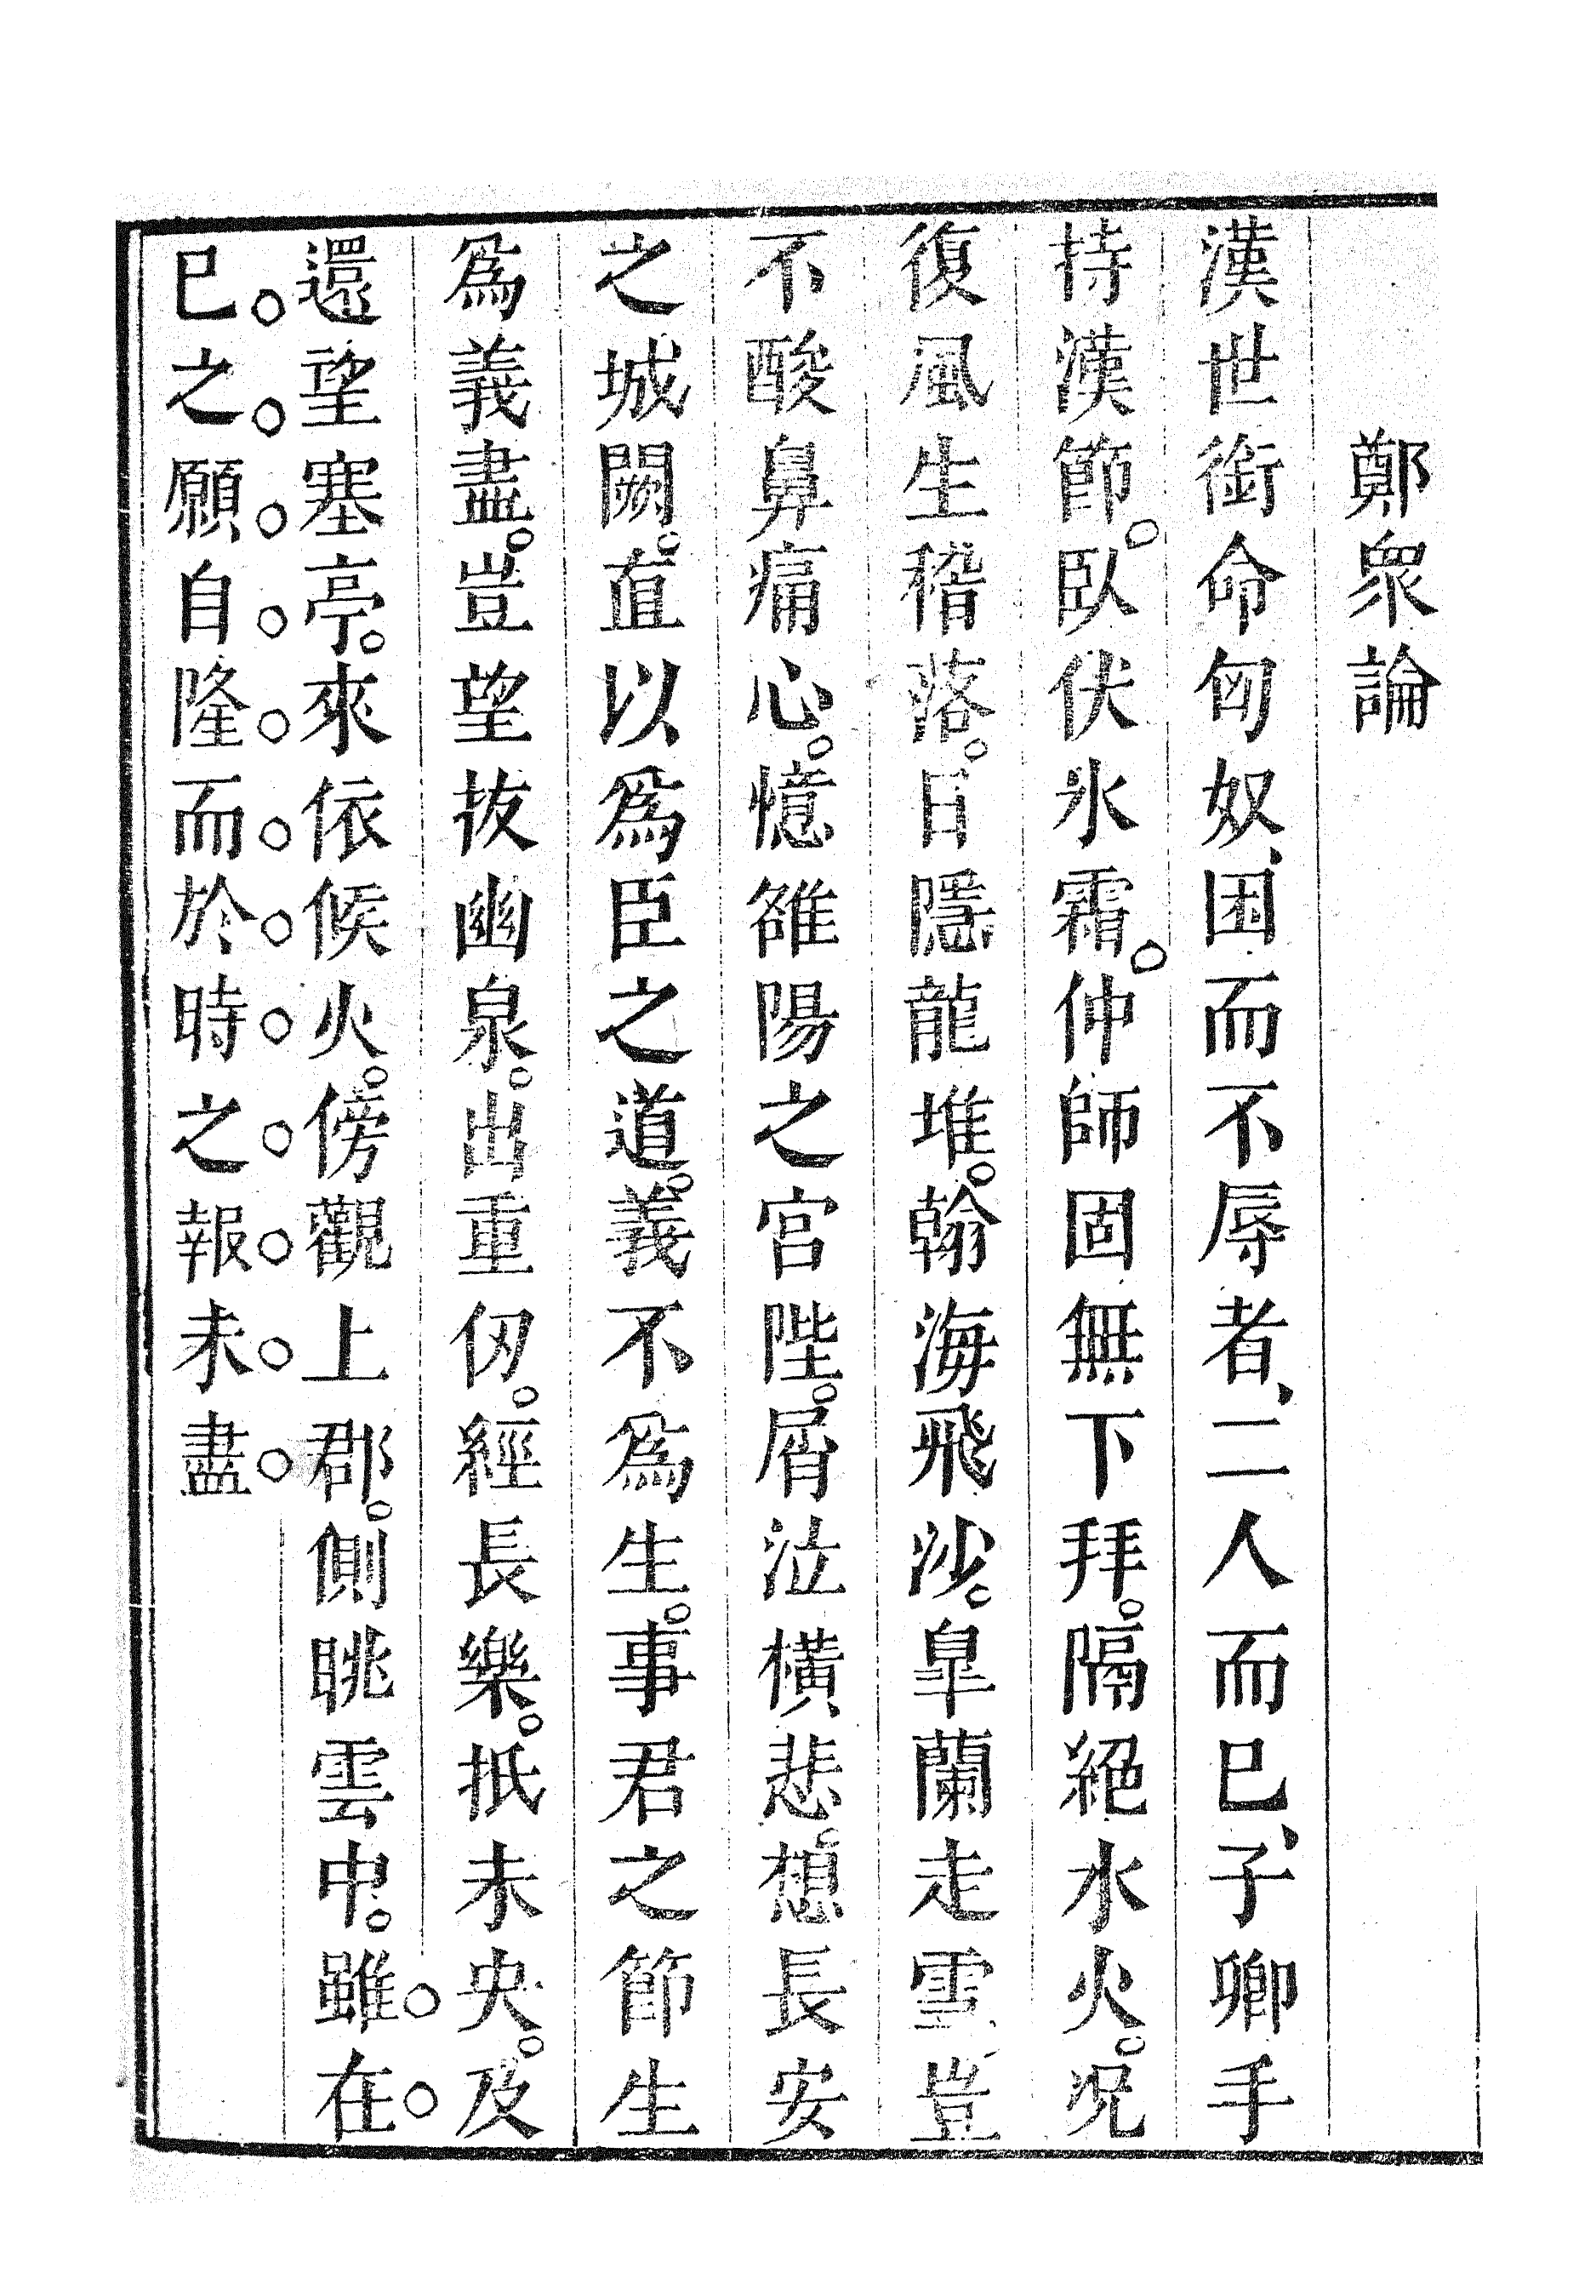 鄭衆論
漢世銜命匈奴、困而不辱者、二人而已、子卿手
持漢節。臥伏氷霜。仲師固無下拜。隔絕水火。况
復風生稽落。日隱龍堆。翰海飛沙。皐蘭走雪豈
不酸鼻痛心。憶雒陽之宮陛。屑泣橫悲。想長安
之城闕。直以爲臣之道。義不爲生。事君之節生
爲義盡。豈望拔幽泉。出重仞。經長樂。抵未央。及
還望塞亭。來依候火。傍觀上郡。側眺雲中。雖在
已之願自隆而於時之報未盡